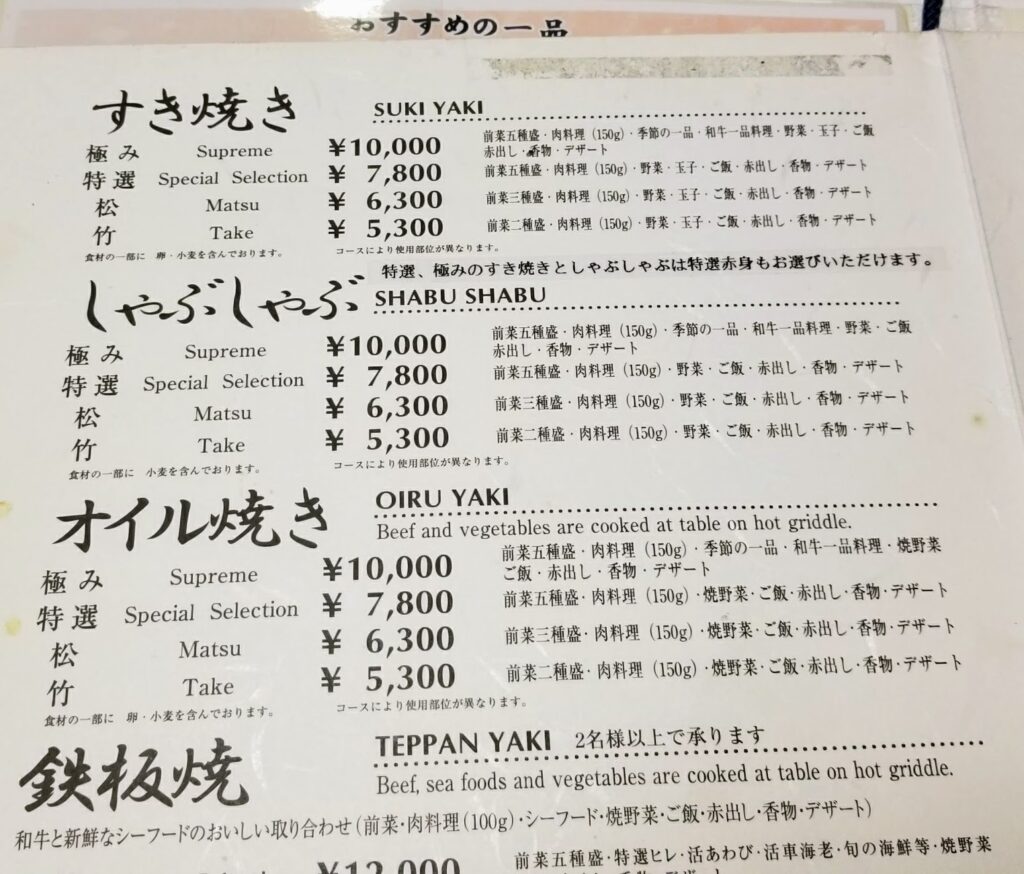 おすすめの一品
すき焼き SUKI YAKI
極み Supreme ¥10,000 前菜五種盛・肉料理（150g）・季節の一品・和牛一品料理・野菜・玉子・ご飯
赤出し・香物・デザート
特選 Special Selection ¥ 7,800 前菜五種盛・肉料理（150g）・野菜・玉子・ご飯・赤出し・香物・デザート
松 Matsu ¥ 6,300 前菜三種盛・肉料理（150g）・野菜・玉子・ご飯・赤出し・香物・デザート
竹 Take ¥ 5,300 前菜二種盛・肉料理（150g）・野菜・玉子・ご飯・赤出し・香物・デザート
食材の一部に 卵・小麦を含んでおります。 コースにより使用部位が異なります。
特選、極みのすき焼きとしゃぶしゃぶは特選赤身もお選びいただけます。
しゃぶしゃぶ SHABU SHABU
極み Supreme ¥10,000 前菜五種盛・肉料理（150g）・季節の一品・和牛一品料理・野菜・ご飯
赤出し・香物・デザート
特選 Special Selection ¥ 7,800 前菜五種盛・肉料理（150g）・野菜・ご飯・赤出し・香物・デザート
松 Matsu ¥ 6,300 前菜三種盛・肉料理（150g）・野菜・ご飯・赤出し・香物・デザート
竹 Take ¥ 5,300 前菜二種盛・肉料理（150g）・野菜・ご飯・赤出し・香物・デザート
食材の一部に 小麦を含んでおります。 コースにより使用部位が異なります。
オイル焼き OIRU YAKI
Beef and vegetables are cooked at table on hot griddle.
極み Supreme ¥10,000 前菜五種盛・肉料理（150g）・季節の一品・和牛一品料理・焼野菜
ご飯・赤出し・香物・デザート
特選 Special Selection ¥ 7,800 前菜五種盛・肉料理（150g）・焼野菜・ご飯・赤出し・香物・デザート
松 Matsu ¥ 6,300 前菜三種盛・肉料理（150g）・焼野菜・ご飯・赤出し・香物・デザート
竹 Take ¥ 5,300 前菜二種盛・肉料理（150g）・焼野菜・ご飯・赤出し・香物・デザート
食材の一部に 卵・小麦を含んでおります。 コースにより使用部位が異なります。
鉄板焼 TEPPAN YAKI 2名様以上で承ります
Beef, sea foods and vegetables are cooked at table on hot griddle.
和牛と新鮮なシーフードのおいしい取り合わせ（前菜・肉料理（100g）・シーフード・焼野菜・ご飯・赤出し・香物・デザート）
¥12,000 前菜五種盛・特選ヒレ・活あわび・活車海老・旬の海鮮等・焼野菜